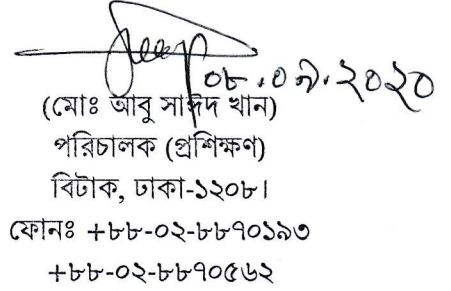 ০৮.০৭.২০২০
(মোঃ আবু সাঈদ খান)
পরিচালক (প্রশিক্ষণ)
বিটাক, ঢাকা-১২০৮।
ফোনঃ +৮৮-০২-৮৮৭০১৯৩
+৮৮-০২-৮৮৭০৫৬২